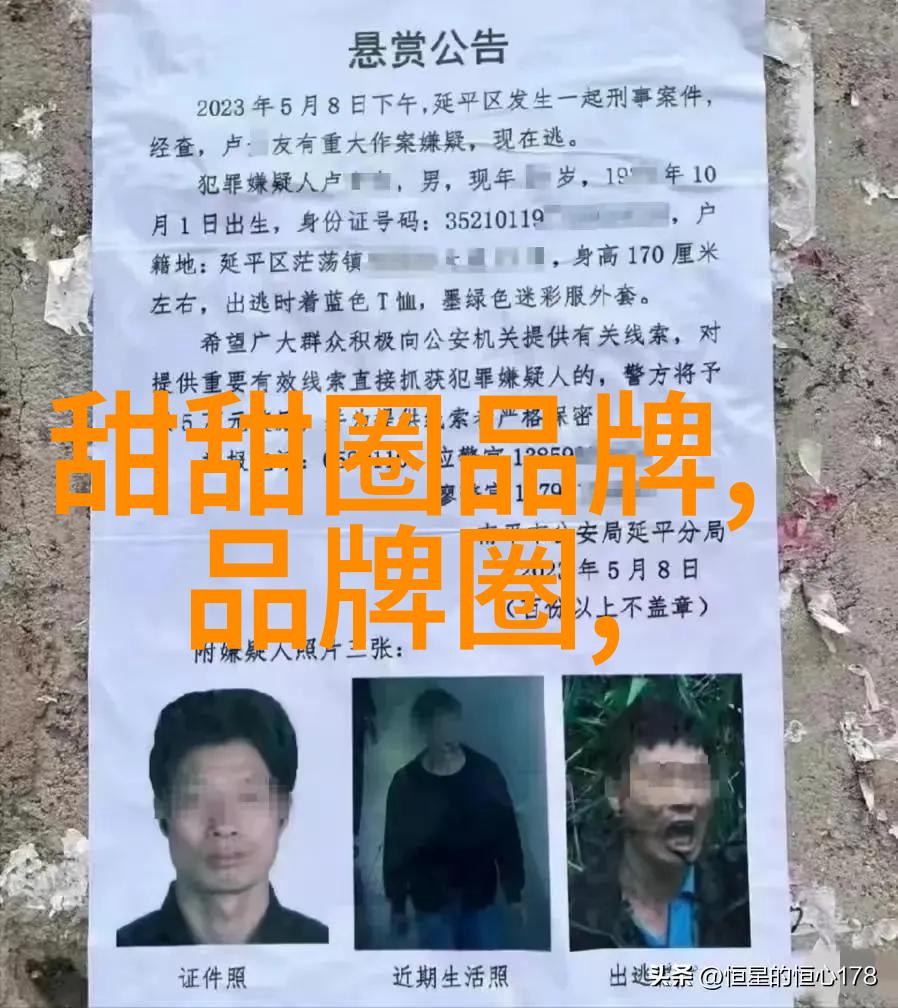 悬赏公告
2023年5月8日下午,延平区发生一起刑事案件,
经查,卢 友有重大作案嫌疑,现在逃。
犯罪嫌疑人卢 ,男,现年 岁,19 年10
月1日出生,身份证号码:35210119 ,户
籍地:延平区茫荡镇 ,身高170厘米
左右,出逃时着蓝色T恤,墨绿色迷彩服外套。
希望广大群众积极向公安机关提供有关线索,对
提供重要有效线索直接抓获犯罪嫌疑人的,警方将予
5 元 提供线索 严格保密
甜甜圈品牌,
警官13859
品牌圈,
公安局延平分局
2023年5月8日
(百份以上不盖章)
附嫌疑人照片三张:
证件照
近期生活照
出逃
头条 @恒星的恒心178